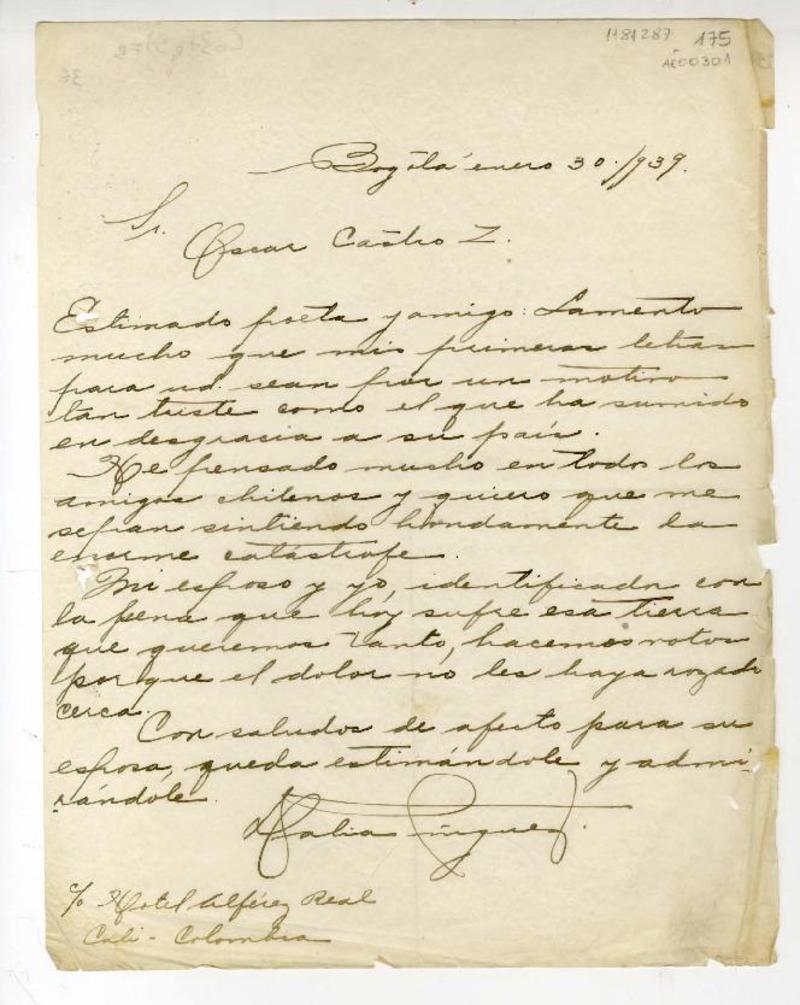 1181287 175
AE00301
Bogotá enero 30./939.
Sr.
Oscar Castro Z.
Estimado poeta y amigo: Lamento
mucho que mis primeras letras
para ud. sean por un motivo
tan triste como el que ha sumido
en desgracia a su país.
He pensado mucho en todos los
amigos chilenos y quiero que me
sepan sintiendo hondamente la
enorme catástrofe.
Mi esposo y yo, identificados con
la pena que hoy sufre esa tierra
que queremos tanto, hacemos votos
por que el dolor no les haya rozado
cerca.
Con saludos de afecto para su
esposa, queda estimándole y admi-
rándole.
Dalia Íñiguez.
c/o Hotel Alférez Real
Cali - Colombia